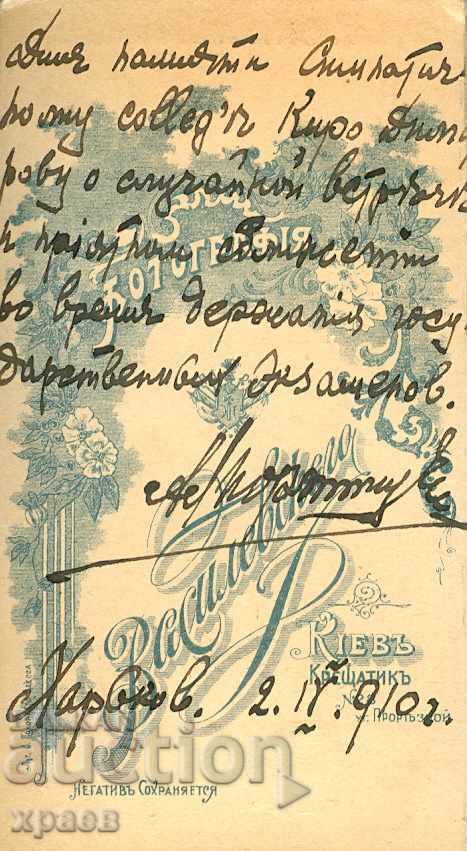 Для памяти Симпатич-
ному colleg'ѣ Киро Дими
рову о случайной встрѣчѣ
и пріятном
во время держанія госу-
дарственных экзаменов.
Харьков. 2. IV. 910 г.
Фотографія
Василевскаго
Кіевъ
Крещатикъ
уг. Прорѣзной
Негативъ Сохраняется
auction
храев